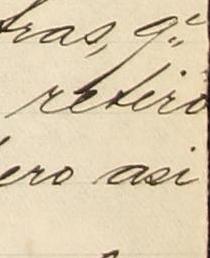 tras, q.^e
retiro
ero asi